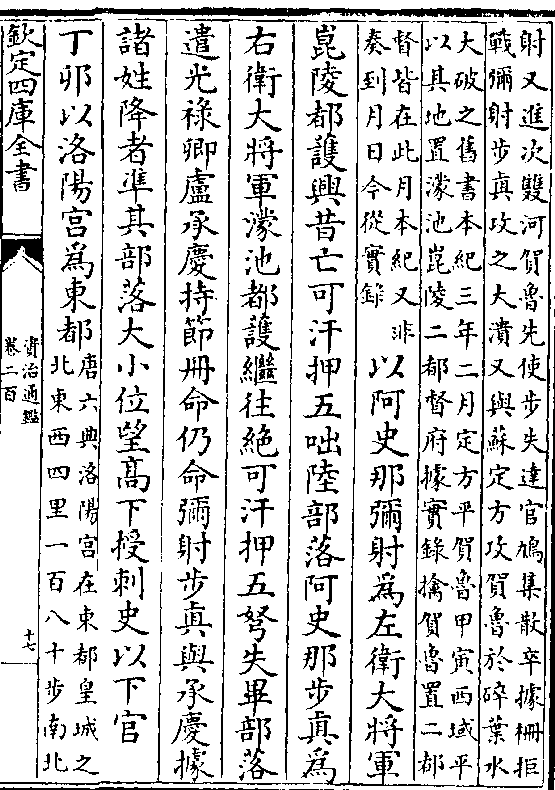 射又進次雙河賀魯先使步失達官鳩集散卒據柵拒
戰彌射步真攻之大潰又與蘇定方攻賀魯於碎葉水
大破之舊書本紀三年二月定方平賀魯甲寅西域平
以其地置濛池崑陵二都督府據實錄擒賀魯置二都
督皆在此月本紀又非
奏到月日今從實錄
以阿史那彌射為左衛大將軍
崑陵都護興昔亡可汗押五咄陸部落阿史那步真為
右衛大將軍濛池都護繼往絶可汗押五弩失畢部落
遣光禄卿盧承慶持節冊命仍命彌射步真與承慶據
諸姓降者準其部落大小位望高下授刺史以下官
丁卯以洛陽宫為東都
唐六典洛陽宫在東都皇城之
北東西四里一百八十步南北
欽定四庫全書
資治通鑑
卷二百
十七